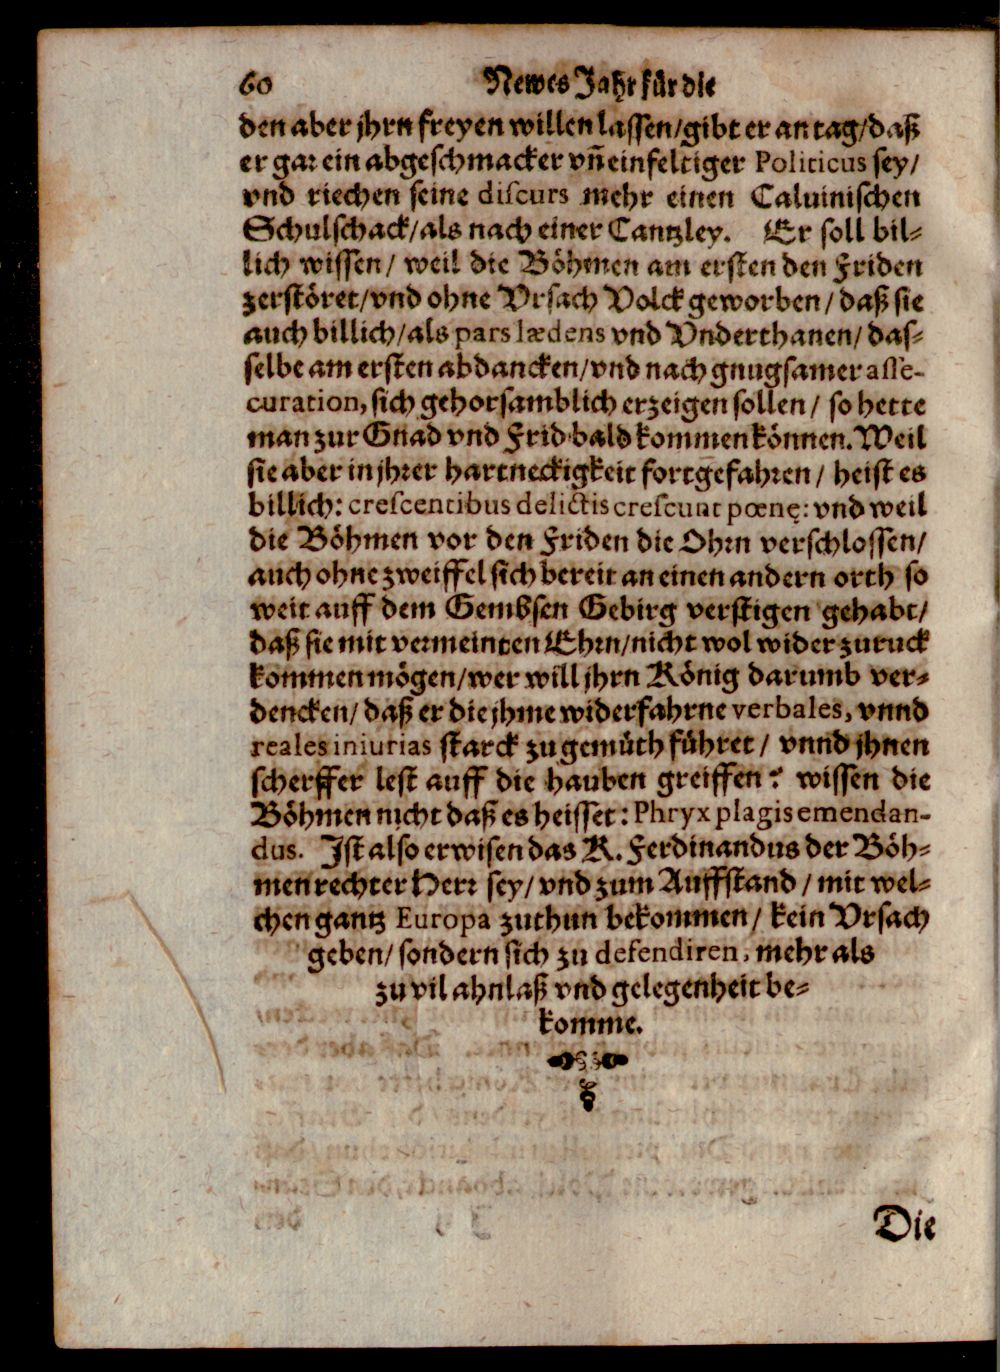 60 Newes Jahr für die
den aber jhrn freyen willen lassen/gibt er an tag/daß
er gar ein abgeschmacker vn̄ einfeltiger Politicus sey/
vnd riechen seine discurs mehr einen Caluinischen
Schulschack/als nach einer Cantzley. Er soll bil⸗
lich wissen/ weil die Böhmen am ersten den Friden
zerstöret/vnd ohne Vrsach Volck geworben/ daß sie
auch billich/als pars lædens vnd Vnderthanen/ das⸗
selbe am ersten abdancken/vnd nach gnugsamer asse-
curation, sich gehorsamblich erzeigen sollen/ so hette
man zur Gnad vnd Frid bald kommen können. Weil
sie aber in jhrer hartneckigkeit fortgefahren/ heist es
billich: crescentibus delictis crescunt pœnę: vnd weil
die Böhmen vor den Friden die Ohrn verschlossen/
auch ohne zweiffel sich bereit an einen andern orth so
weit auff dem Gembsen Gebirg verstigen gehabt/
daß sie mit vermeinten Ehrn/nicht wol wider zuruck
kommen mögen/wer will jhrn König darumb ver⸗
dencken/ daß er die jhme widerfahrne verbales, vnnd
reales iniurias starck zu gemüth führet/ vnnd jhnen
scherffer lest auff die hauben greiffen? wissen die
Böhmen nicht daß es heisset: Phryx plagis emendan-
dus. Ist also erwisen das K. Ferdinandus der Böh⸗
men rechter Herr sey/ vnd zum Auffstand/ mit wel⸗
chen gantz Europa zuthun bekommen/ kein Vrsach
geben/ sondern sich zu defendiren, mehr als
zu vil ahnlaß vnd gelegenheit be⸗
komme.
Die